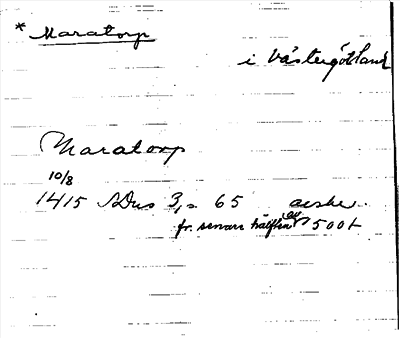 * Maratorp
i Västergötland
Maratorp
10/8
1415 SDns 3, s 65 avskr.
fr. senare hälften av 1500t